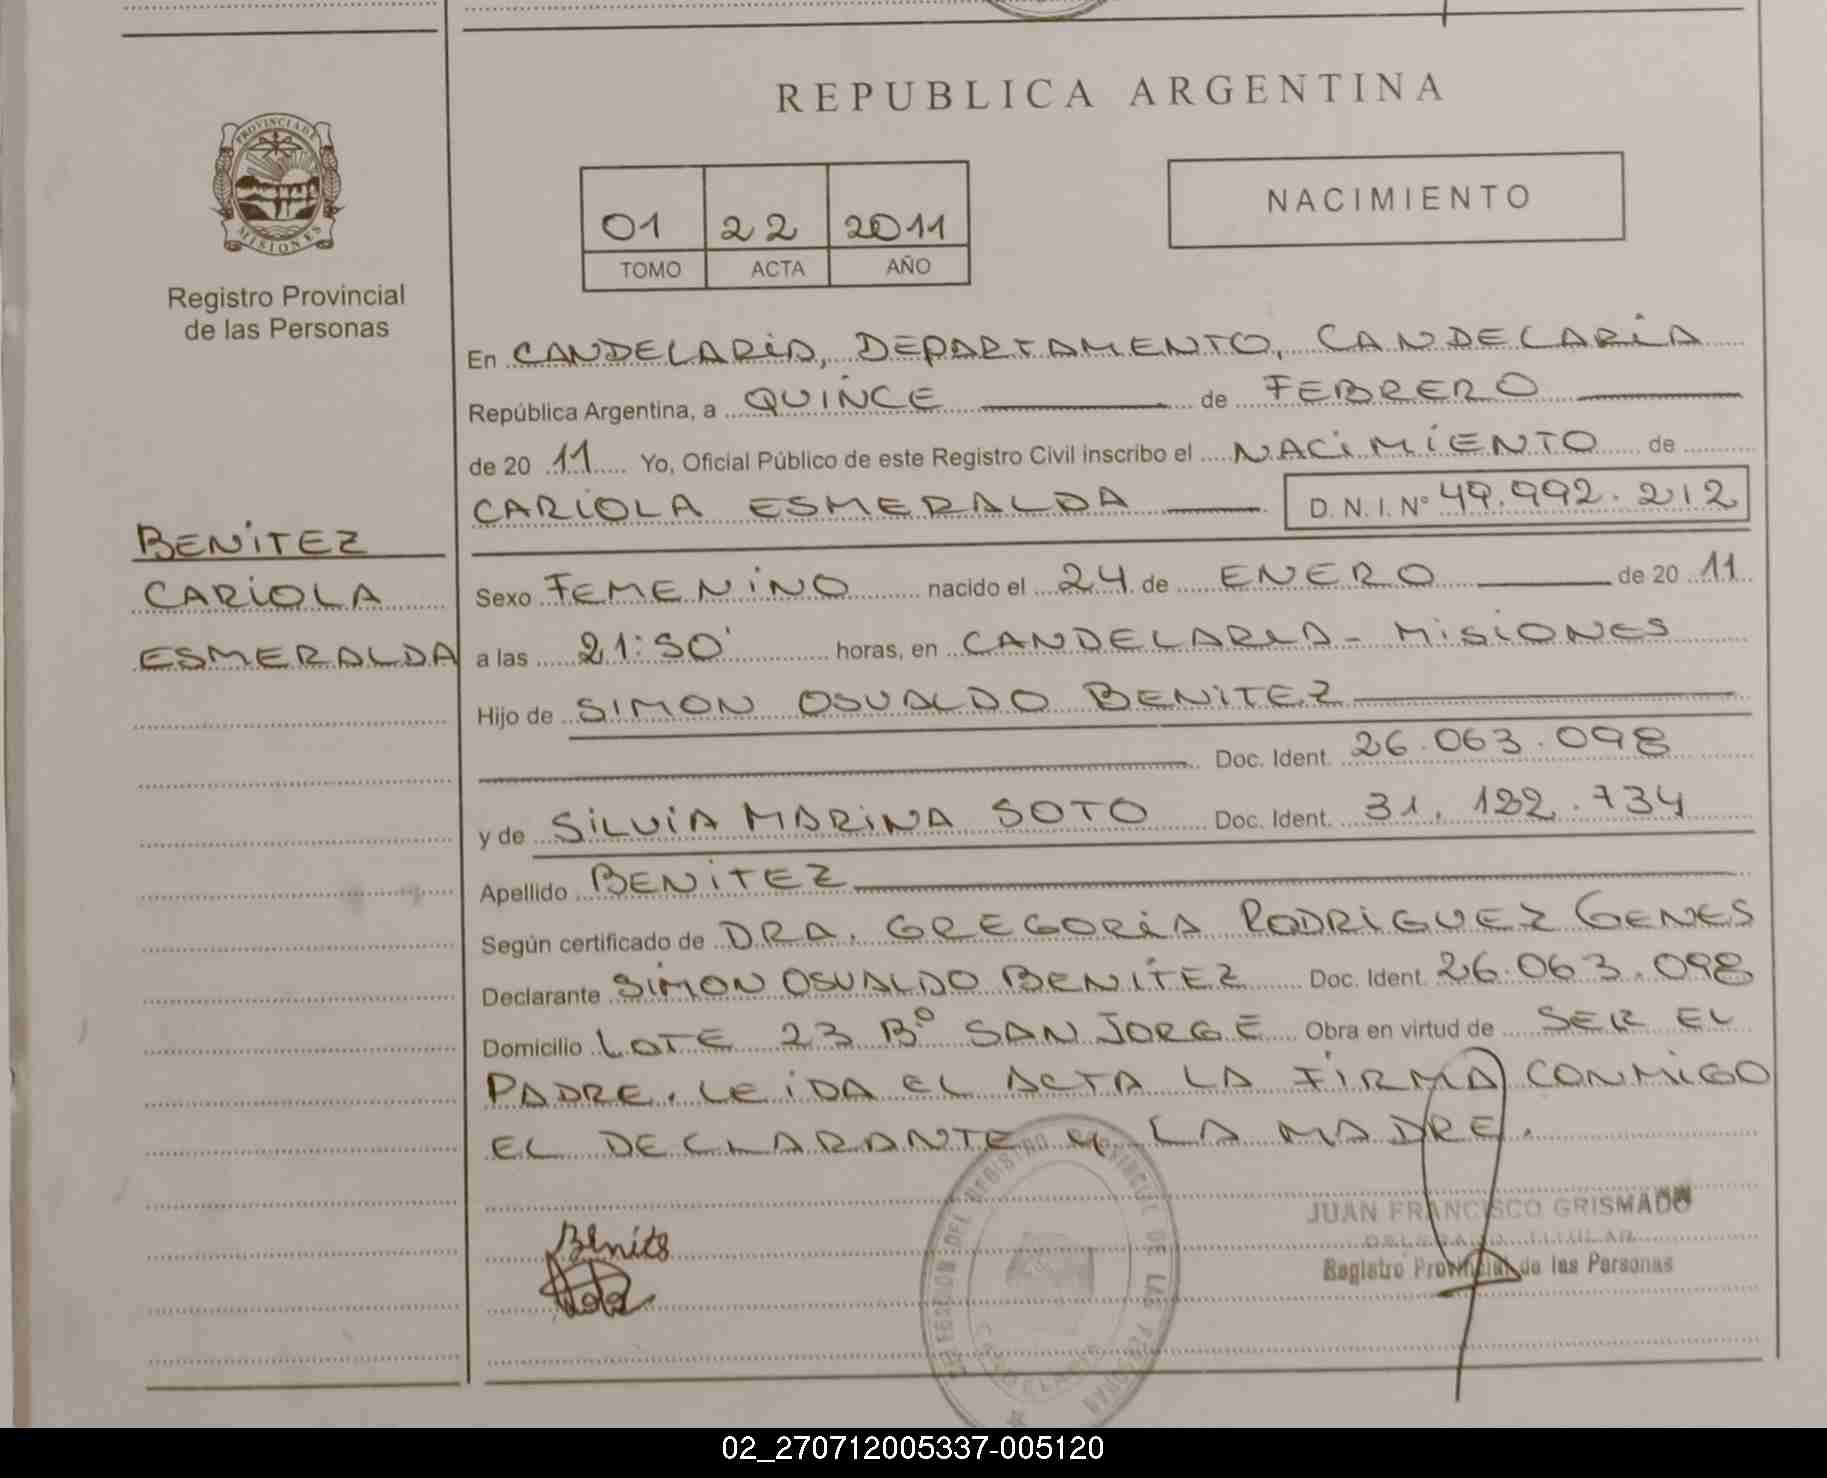 REPUBLICA ARGENTINA
PROVINCIA DE
MISIONES
Registro Provincial
de las Personas
01 22 2011
TOMO ACTA AÑO
NACIMIENTO
En CANDELARIA, DEPARTAMENTO, CANDELARIA
República Argentina, a QUINCE de FEBRERO
de 20 11 Yo, Oficial Público de este Registro Civil inscribo el NACIMIENTO de
CARIOLA ESMERALDA D.N.I. Nº 49.992.212
BENITEZ
CARIOLA
ESMERALDA
Sexo FEMENINO nacido el 24 de ENERO de 20 11
a las horas, en CANDELARIA - MISIONES
Hijo de SIMON OSVALDO BENITEZ
Doc. Ident. 26.063.098
y de SILVIA MARINA SOTO Doc. Ident. 31.132.734
Apellido BENITEZ
Según certificado de DRA. GREGORIA RODRIGUEZ GENES
Declarante SIMON OSVALDO BENITEZ Doc. Ident. 26.063.098
Domicilio LOTE 23 Bº SAN JORGE Obra en virtud de SER EL
PADRE. LEIDA EL ACTA LA FIRMA CONMIGO
EL DECLARANTE y LA MADRE.
JUAN FRANCISCO GRISMADO
Registro Provincial de las Personas
02_270712005337-005120